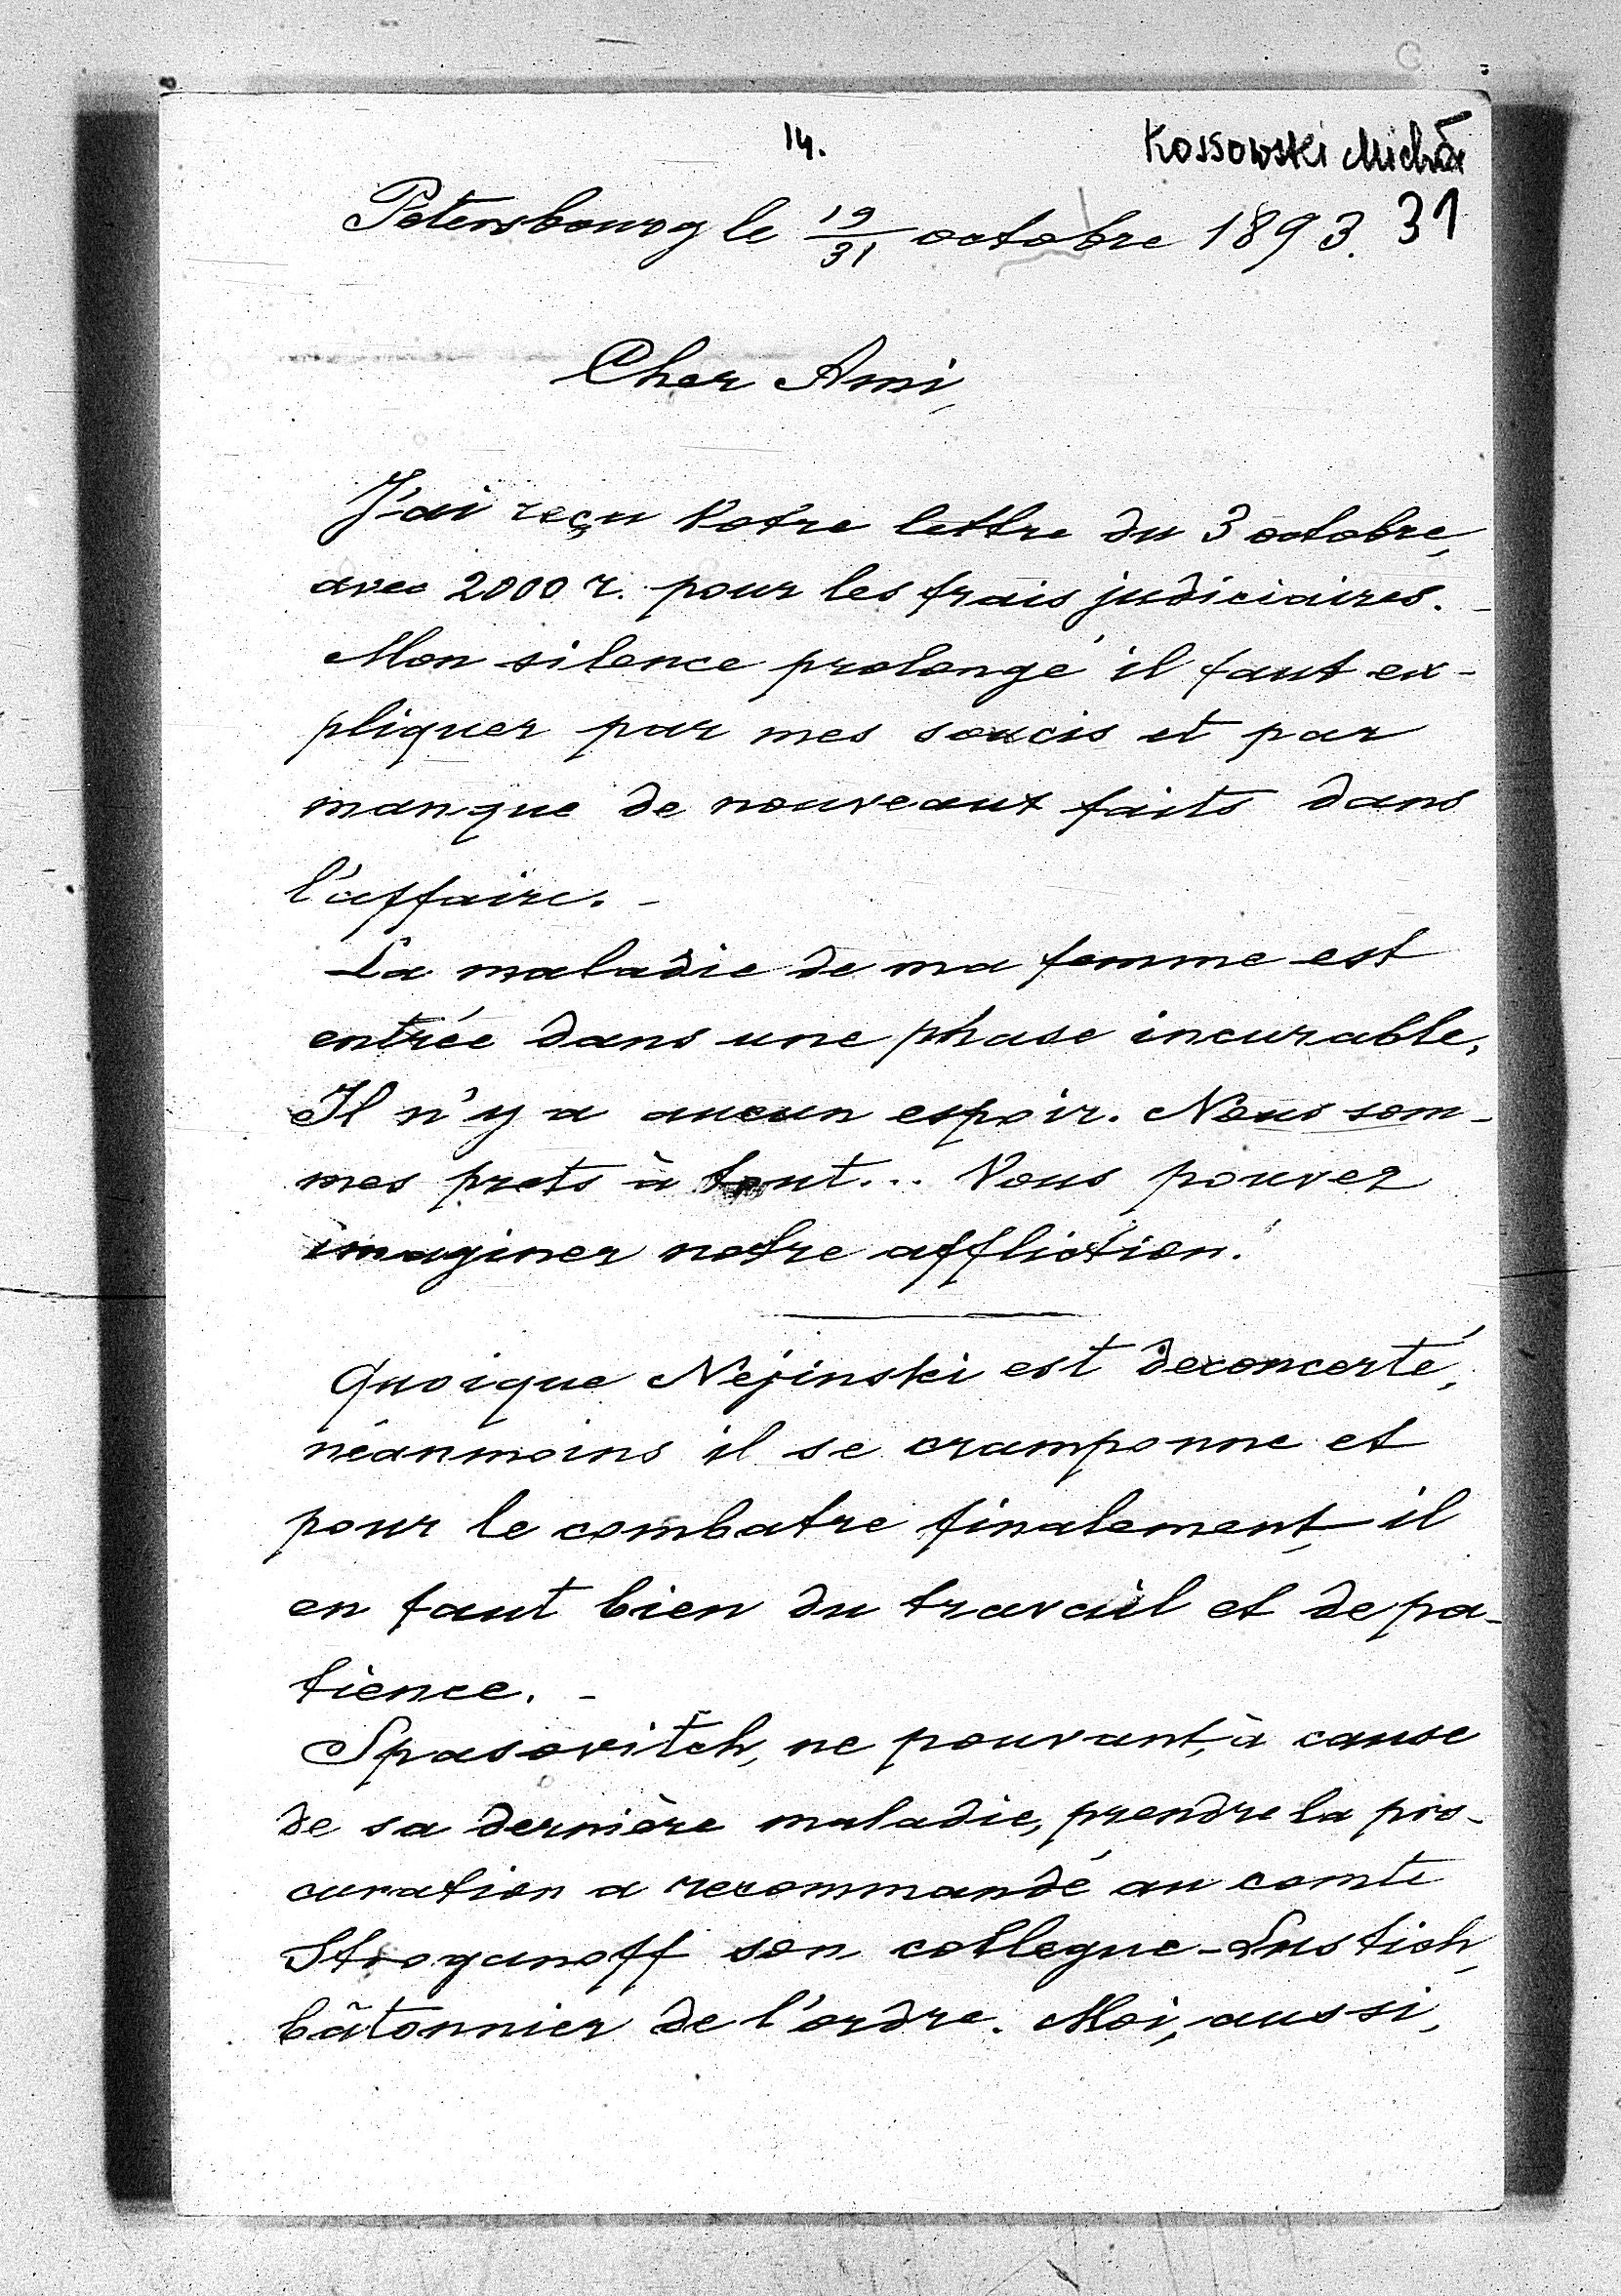 14.
Kossowski Michał
31
Petersbourg le 19/31 octobre 1893.
Cher Ami,
J'ai reçu Votre lettre du 3 octobre,
avec 2000 r. pour les frais judiciaires. -
Mon silence prolongé il faut ex-
pliquer par mes soucis et par
manque de nouveaux faits dans
l'affaire. -
La maladie de ma femme est
entrée dans une phase incurable.
Il n'y a aucun espoir. Nous som-
mes prets à tout... Vous pouvez
imaginer notre affliction.
Quoique Néjinski est deconcerté,
néanmoins il se cramponne et
pour le combatre finalement, il
en faut bien du travail et de pa-
tience. -
Spasovitch, ne pouvant, à cause
de sa dernière maladie, prendre la pro-
curation a recommandé au comte
Stroganoff son collegue - Lustich,
bâtonnier de l'ordre. Moi, aussi,